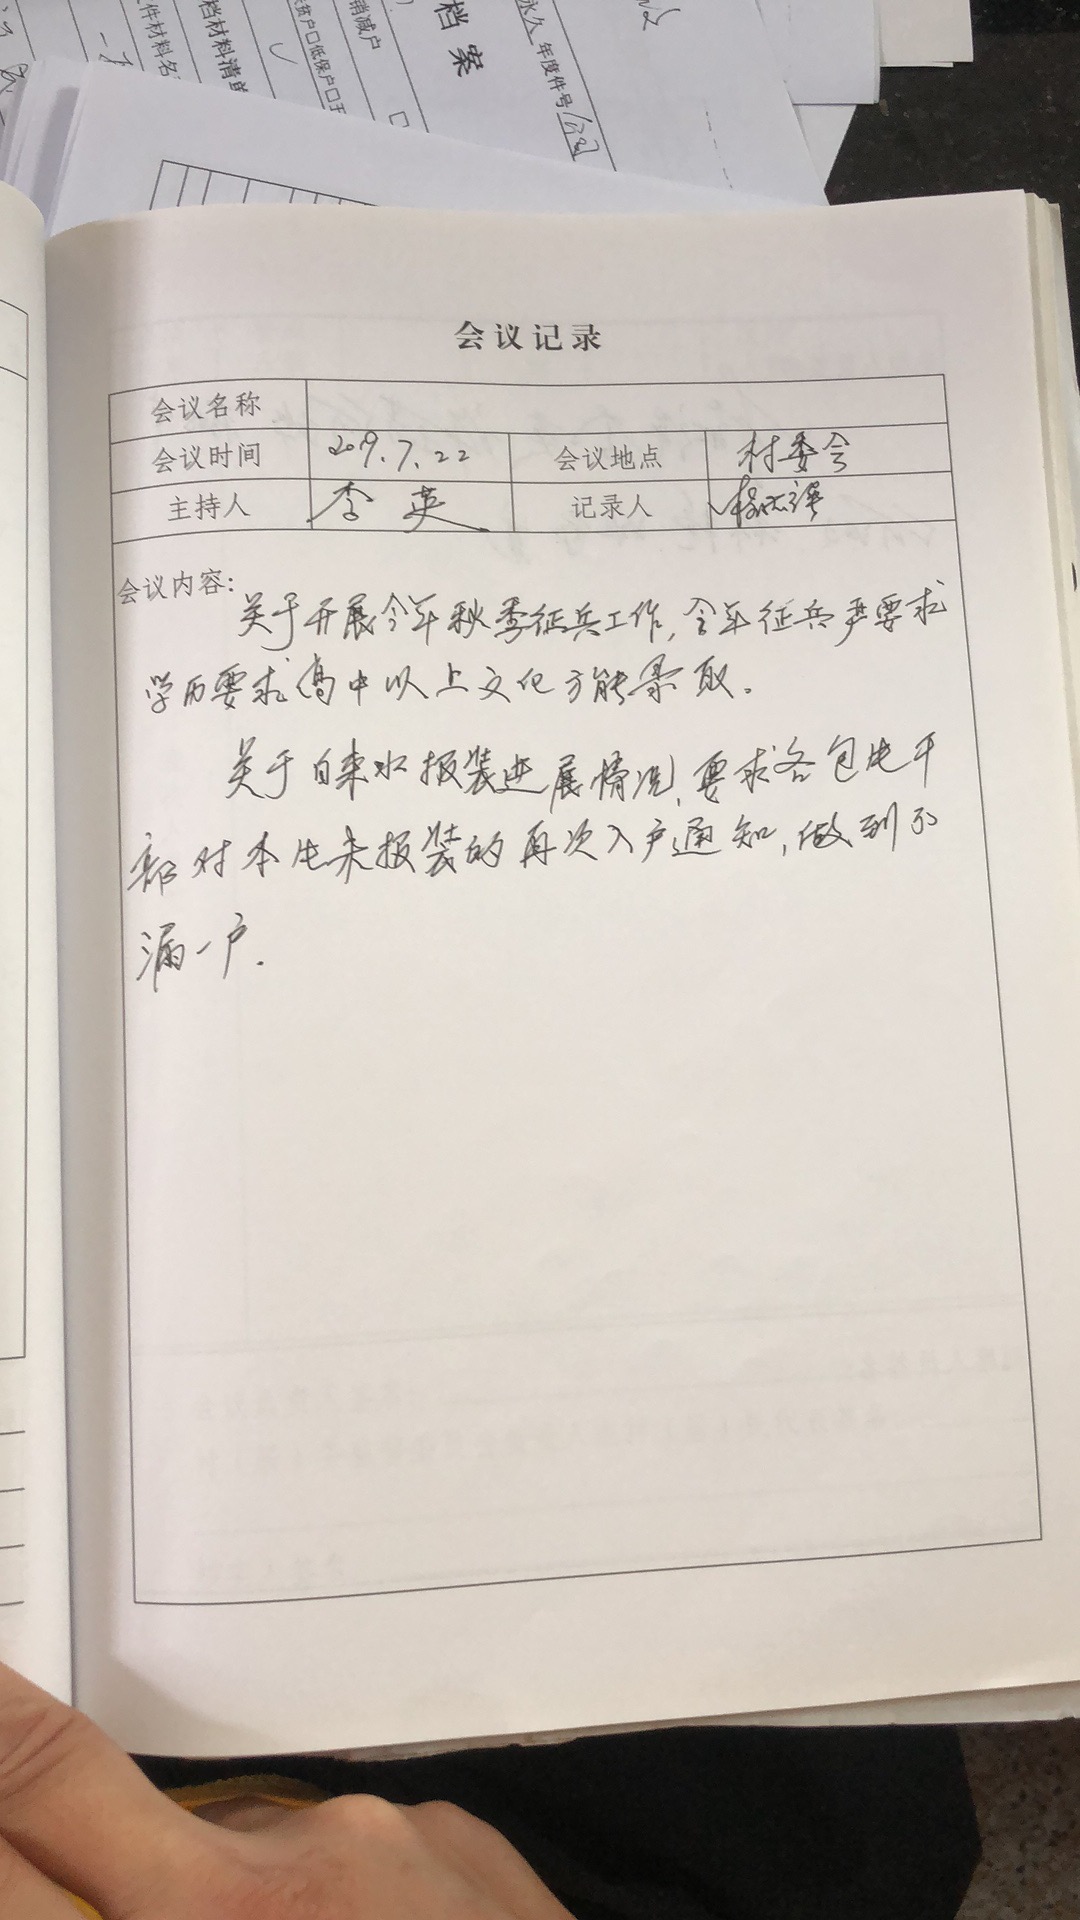 档案
永久 年度件号
消减户
贫户口低保户口
档材料清单
件材料名
会议记录
会议名称
会议时间 2019.7.22 会议地点 村委会
主持人 李英 记录人
会议内容:
关于开展今年秋季征兵工作,今年征兵严要求
学历要求高中以上文化方能录取。
关于自来水报装进展情况,要求各包片干
部对本片未报装的再次入户通知,做到不
漏一户.